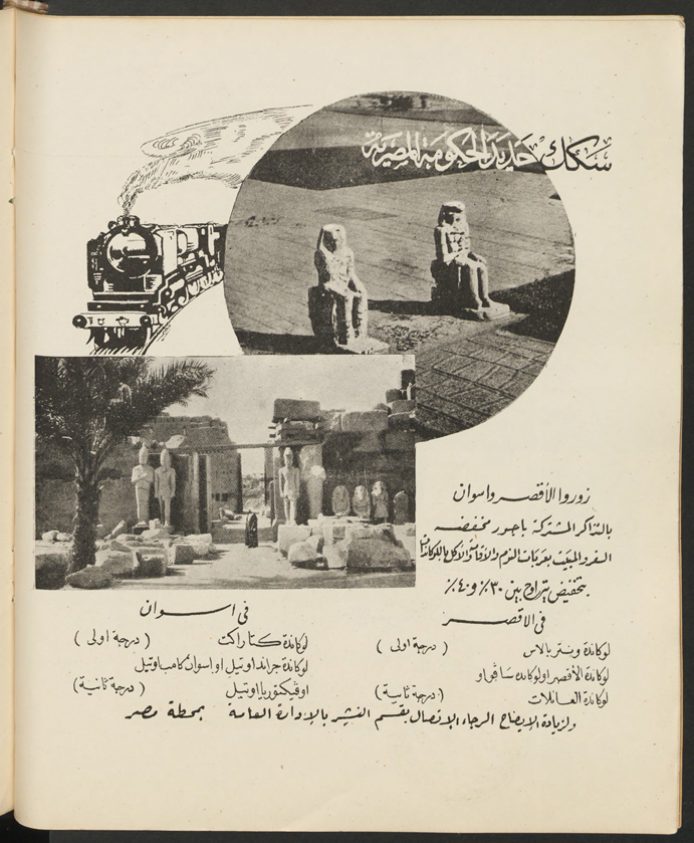 سكك حديد الحكومة المصرية
زوروا الأقصر واسوان
بالتذاكر المشتركة باجور مخفضه
السفر والمبيت بعربات النوم والاقامة والاكل باللوكاندات
بتخفيض يتراوح بين ٣٠٪ و ٤٠٪
فى الاقصر
لوكاندة ونتر بالاس (درجة اولى)
لوكاندة الأقصر اولوكاندة سافواو
لوكاندة العائلات (درجة ثانية)
فى اسوان
لوكاندة كتاراكت (درجة اولى)
لوكاندة جراند اوتيل او اسوان كامب اوتيل
اوڤيكتوريا اوتيل (درجة ثانية)
ولزيادة الايضاح الرجاء الاتصال بقسم النشر بالادارة العامة بمحطة مصر